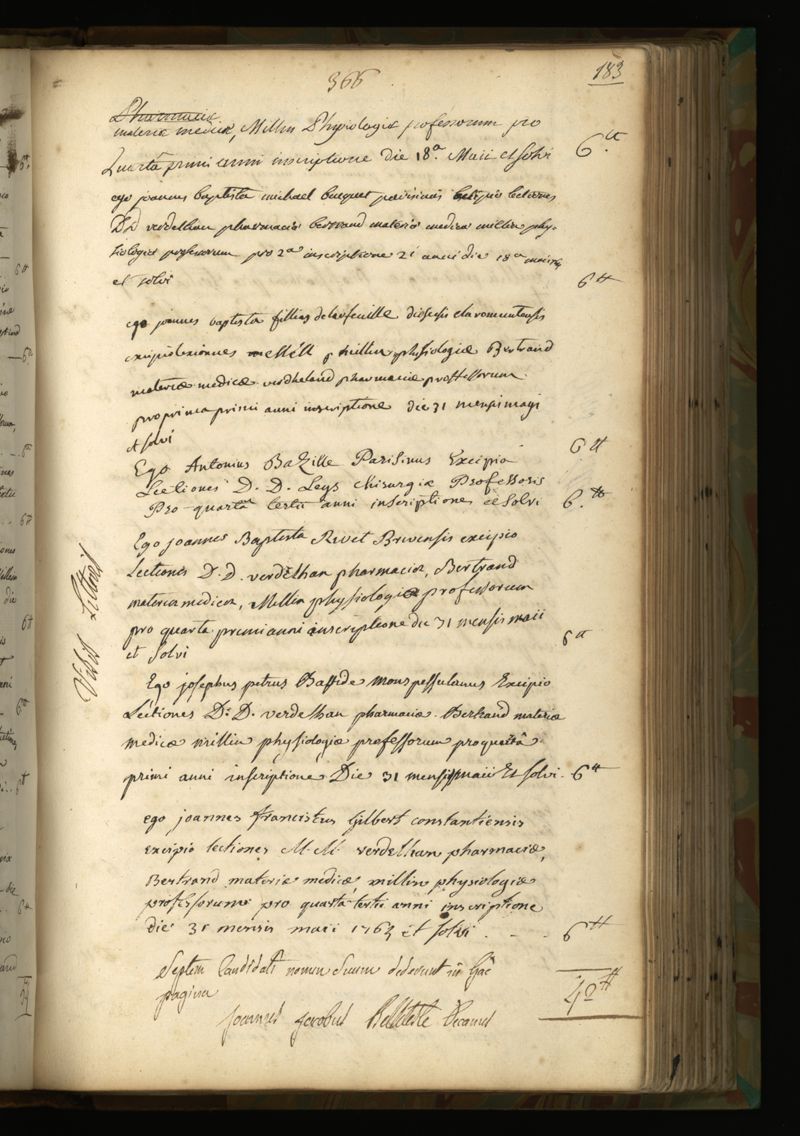 366
183
Pharmaciæ
materiæ medicæ, Millin Physiologiæ professorum pro
Quartâ primi anni inscriptione die 18ª Maii et solvi 6.tt
ego joannes baptista michael bucquet parisinus excipio lectiones
D.d verdelhan pharmaciæ bertrand materiæ medicæ millin phy-
siologiæ professorum pro 2ª inscriptione 2i anni die 18ª maii
et solvi 6tt
ego joannes baptista fillias delafeuille diocesis claromontensis
excipio lexiones millin physiologiæ Bertrand
materiæ medicæ verdheland pharmaciæ proffessorum
pro prima primi anni inscriptione die 31 mensi magi
et solvi 6tt
Ego Antonius Bazille Parisinus Excipio
Lectiones D. D. Leys chirurgiæ Professoris
Pro quartâ tertii anni inscriptione et Solvi 6.tt
Ego joannes Baptista Rivet Brivensis excipio
Lectiones D.D. verdelhan pharmaciæ, Bertrand
materiæ medicæ, Millin physiologiæ professorum
pro quarta primi anni inscriptione die 31 mensis maii
et Solvi 6tt
Ego josephus petrus Bastide monspessulanus Excipio
Lectiones D. D. verdelhan pharmaciæ Bertrand materiæ
medicæ millin physiologiæ professorum pro quartâ
primi anni inscriptione Die 31 mensis maii Et solvi. 6tt
ego joannes franciscus Gilbert constantiensis
excipio lectiones M.M. verdelhan pharmaciæ,
Bertrand materiæ medicæ, millin physiologiæ
professorum pro quartâ tertii anni inscriptione
die 31 mensis maii 1763 et solvi 6tt
Septem Candidati nomen suum dederunt in hâc
pagina 42tt
joannes jacobus Belleteste Decanus